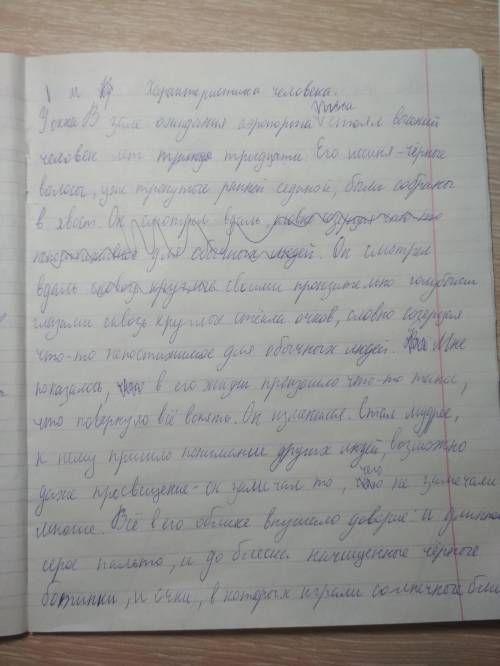 Характеристика человека.
В зале ожидания аэропорта стоял высокий
человек лет тридцати. Его иссиня-чёрные
волосы, уже тронутые ранней сединой, были собраны
в хвост. Он смотрел вдаль, словно что-то
для обычных людей. Он смотрел
вдаль своими пронзительно голубыми
глазами сквозь круглые стёкла очков, словно созерцая
что-то непостижимое для обычных людей. Мне
показалось, в его жизни произошло что-то такое,
что повернуло всё вспять. Он изменился. Стал мудрее,
к нему пришло понимание других людей, возможно
даже просвещение - он замечал то, чего не замечали
многие. Всё в его облике внушало доверие: и длинное
серое пальто, и до блеска начищенные чёрные
ботинки, и очки, в которых играли солнечные